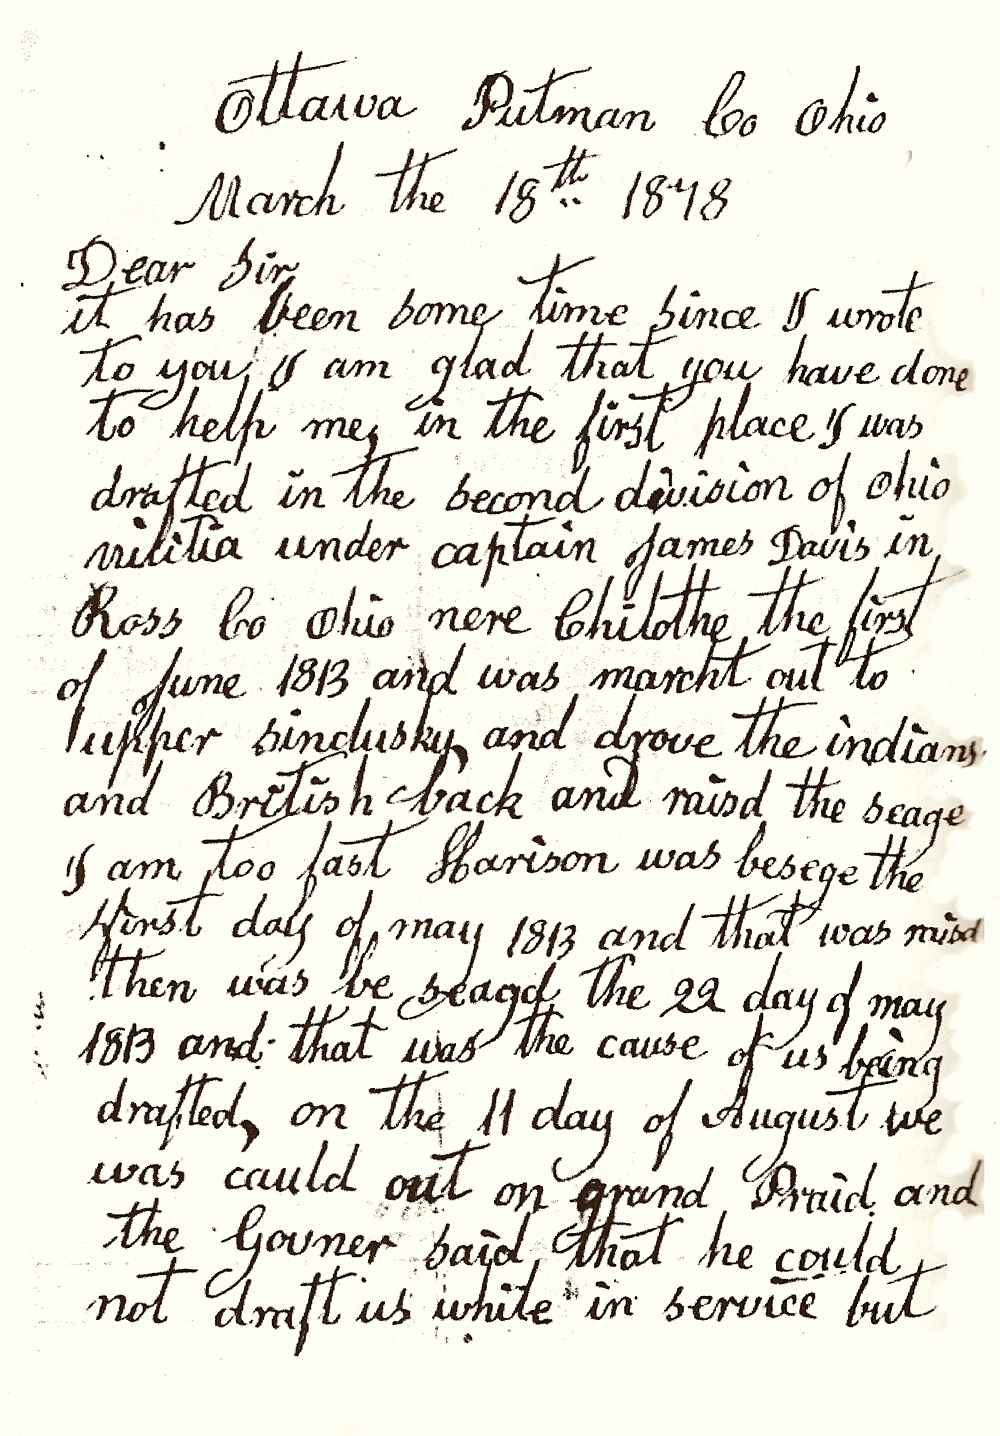 Ottawa Putman Co Ohio
March the 18th 1878
Dear Sir
it has been some time since I wrote
to you, I am glad that you have done
to help me, in the first place I was
drafted in the second division of Ohio
militia under captain James Davis in
Ross Co Ohio nere Chilothe the first
of June 1813 and was marcht out to
upper sindusky, and drove the indians
and British back and raisd the seage
I am too fast Harison was besege the
first day of may 1813 and that was raisd
then was be seagd the 22 day of may
1813 and that was the cause of us being
drafted, on the 11 day of August we
was cauld out on grand Praid and
the Govner said that he could
not draft us white in service but